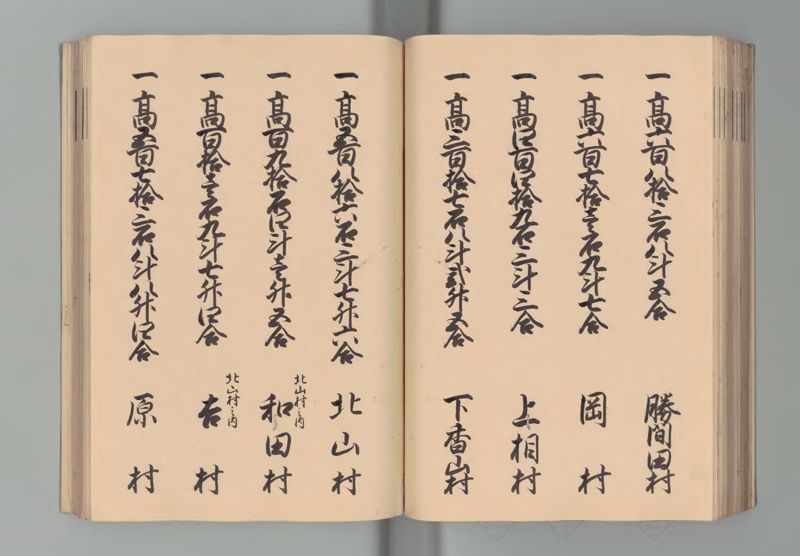 一高六百八拾二石八斗五合 勝間田村
一高六百七拾壱石九斗七合 岡村
一高四百四拾九石二斗二合 上相村
一高二百拾七石八斗弐升五合 下香山村
一高五百八拾六石二斗七升六合 北山村
一高百九拾石四斗壱升五合 北山村之内 和田村
一高百拾壱石九斗七升四合 北山村之内 吉村
一高五百七拾二石八斗八升四合 原村